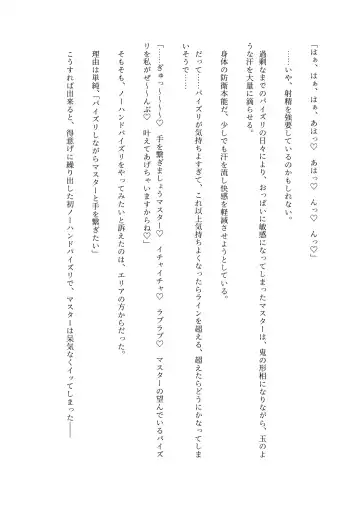 「はぁ、はぁ、はぁ、あはっ♡　あはっ♡　んっ♡　んっ♡」
……いや、射精を強要しているのかもしれない。
過剰なまでのパイズリの日々により、おっぱいに敏感になってしまったマスターは、鬼の形相になりながら、玉のよ
うな汗を大量に滴らせる。
身体の防衛本能だ。少しでも汗を流し快感を軽減させようとしている。
だって……パイズリが気持ちよすぎて、これ以上気持ちよくなったらラインを超える、超えたらどうにかなってしま
いそうで……
「……ぎゅっ～～～～♡　手を繋ぎましょうマスター♡　イチャイチャ♡　ラブラブ♡　マスターの望んでいるパイズ
リを私がぜ～～んぶ♡　叶えてあげちゃいますからね♡」
そもそも、ノーハンドパイズリをやってみたいと訴えたのは、エリアの方からだった。
理由は単純、「パイズリしながらマスターと手を繋ぎたい」
こうすれば出来ると、得意げに繰り出した初ノーハンドパイズリで、マスターは呆気なくイッてしまった――